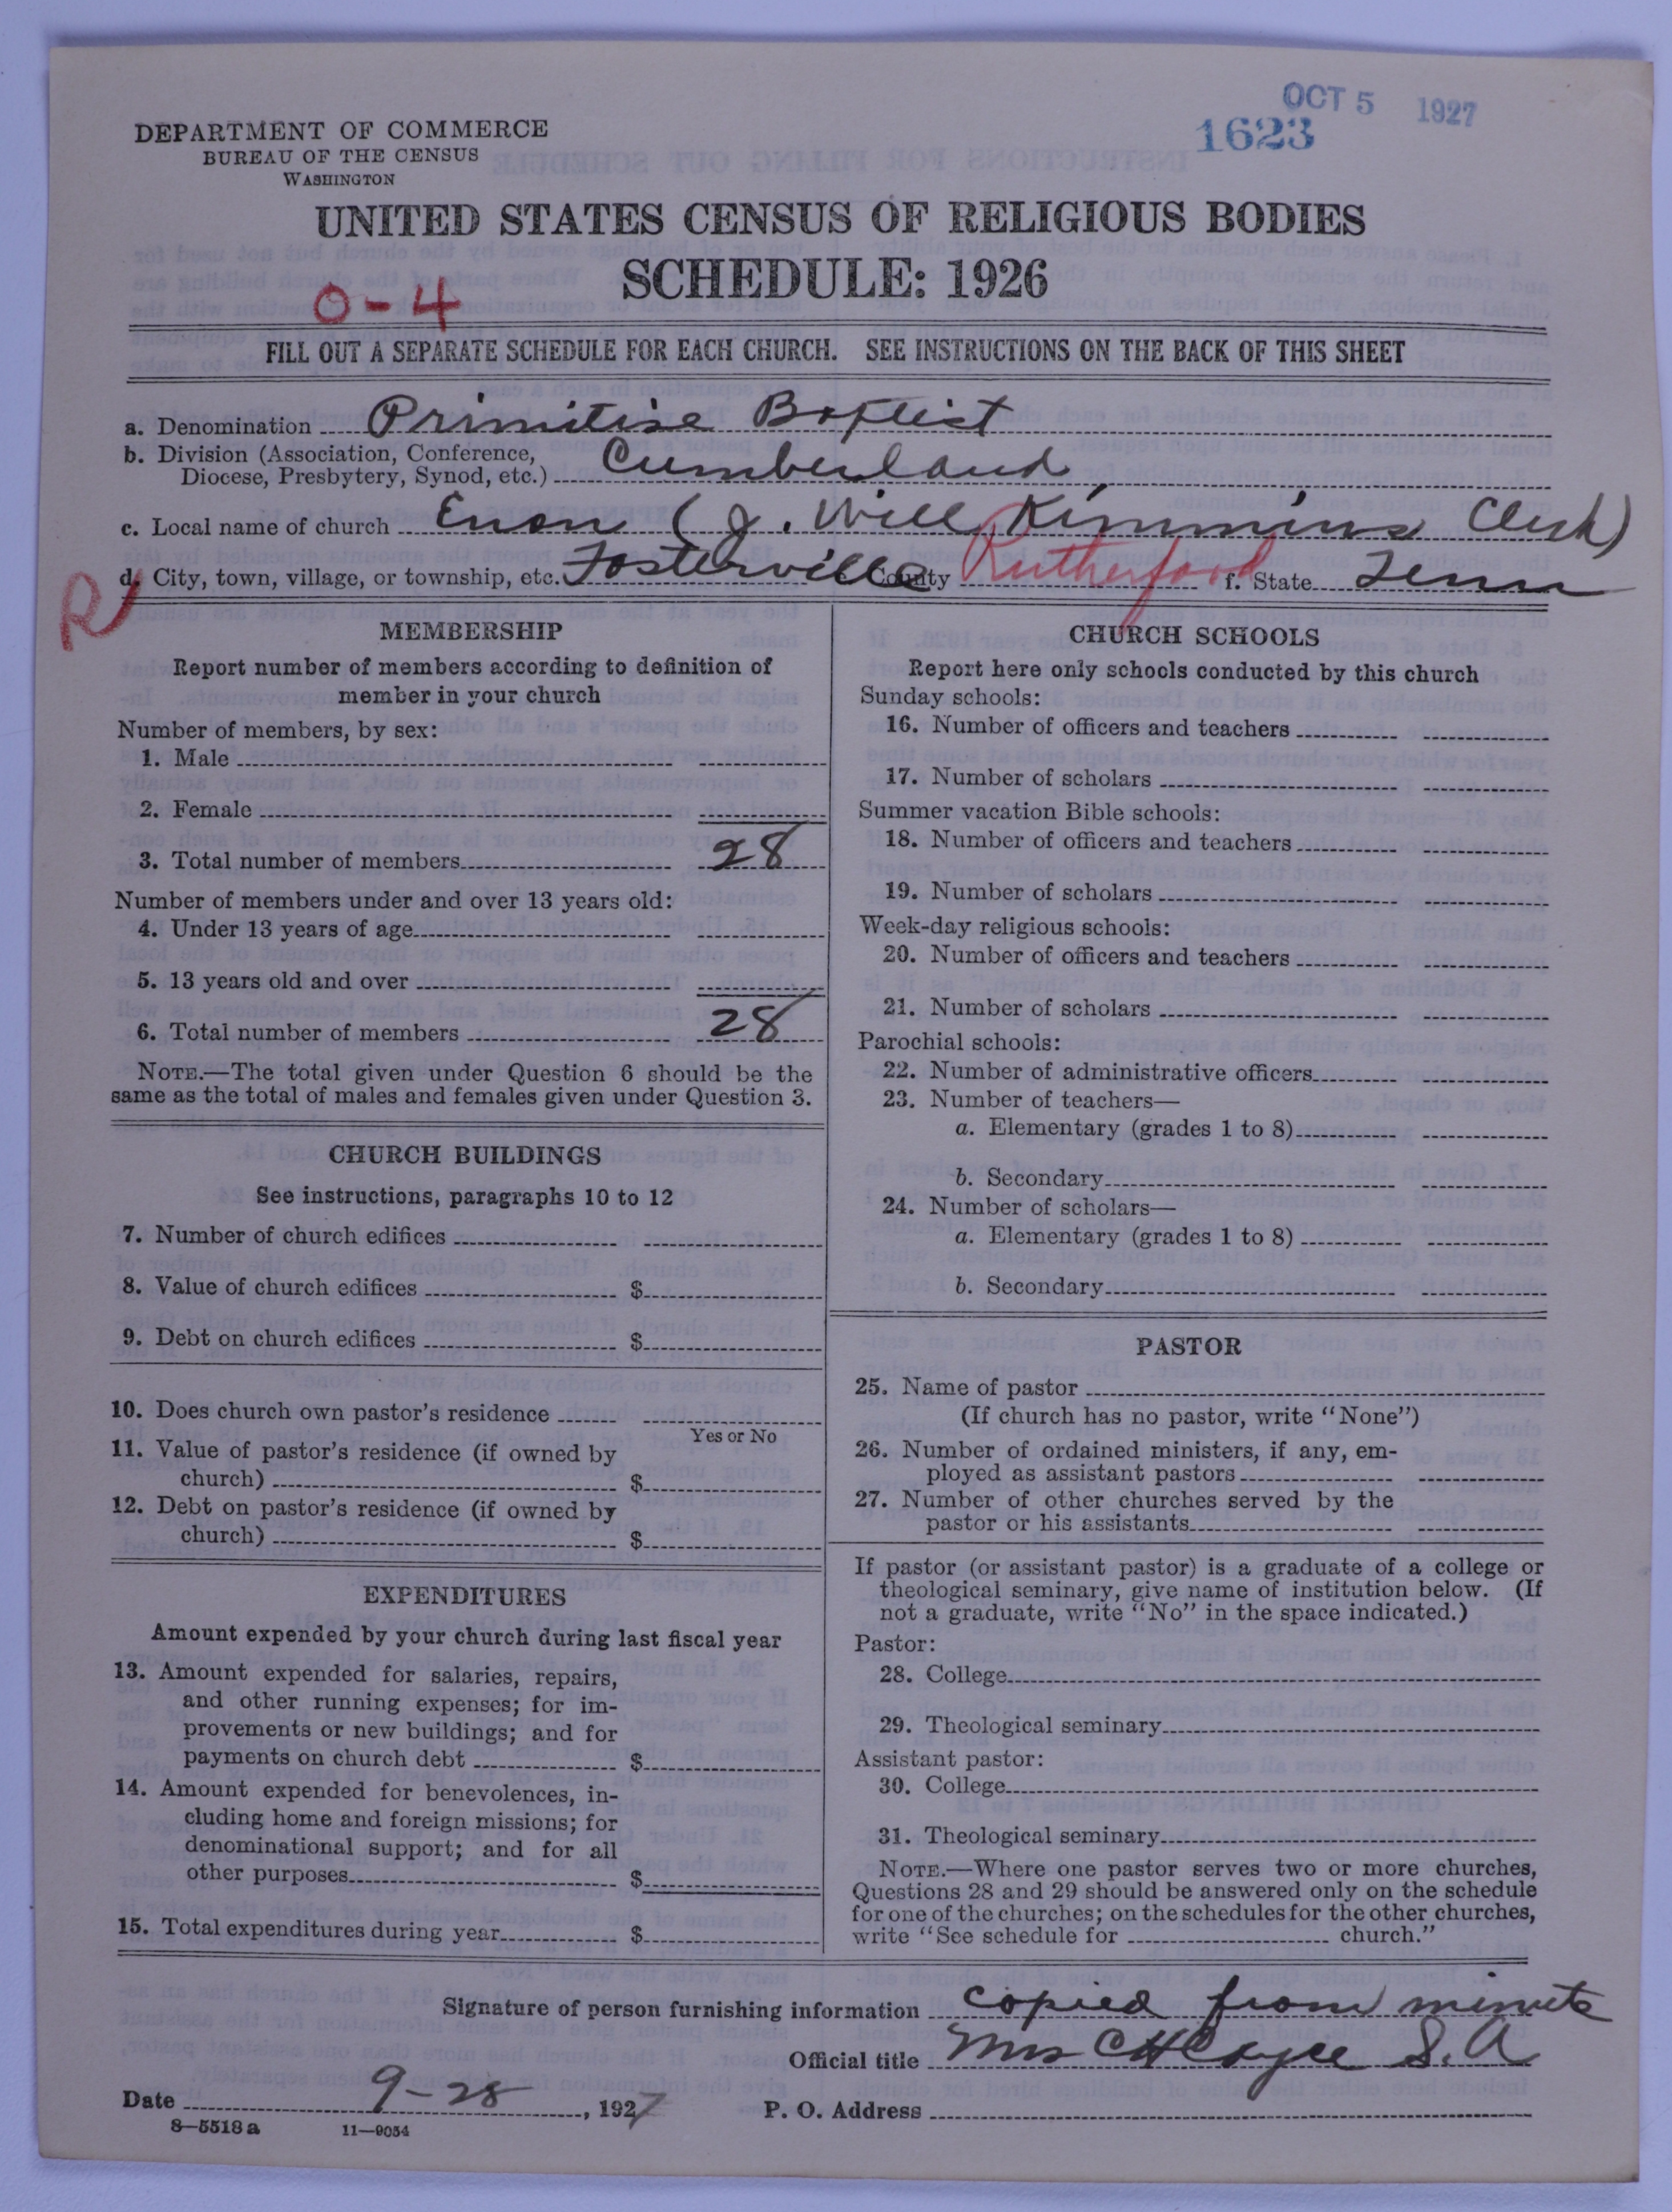 OCT 5 1927
1623
DEPARTMENT OF COMMERCE
BUREAU OF THE CENSUS
WASHINGTON
UNITED STATES CENSUS OF RELIGIOUS BODIES
SCHEDULE: 1926
0-4
FILL OUT A SEPARATE SCHEDULE FOR EACH CHURCH. SEE INSTRUCTIONS ON THE BACK OF THIS SHEET
a. Denomination Primitive Baptist
b. Division (Association, Conference,
Diocese, Presbytery, Synod, etc.) Cumberland
c. Local name of church Enon (J. Will Kimmins Clerk)
R
d. City, town, village, or township, etc. Fosterville County Rutherford f. State Tenn
MEMBERSHIP
Report number of members according to definition of
member in your church
Number of members, by sex:
1. Male
2. Female
3. Total number of members 28
Number of members under and over 13 years old:
4. Under 13 years of age
5. 13 years old and over
6. Total number of members 28
NOTE.—The total given under Question 6 should be the
same as the total of males and females given under Question 3.
CHURCH BUILDINGS
See instructions, paragraphs 10 to 12
7. Number of church edifices
8. Value of church edifices $
9. Debt on church edifices $
10. Does church own pastor's residence
Yes or No
11. Value of pastor's residence (if owned by
church) $
12. Debt on pastor's residence (if owned by
church) $
EXPENDITURES
Amount expended by your church during last fiscal year
13. Amount expended for salaries, repairs,
and other running expenses; for im-
provements or new buildings; and for
payments on church debt $
14. Amount expended for benevolences, in-
cluding home and foreign missions; for
denominational support; and for all
other purposes $
15. Total expenditures during year $
CHURCH SCHOOLS
Report here only schools conducted by this church
Sunday schools:
16. Number of officers and teachers
17. Number of scholars
Summer vacation Bible schools:
18. Number of officers and teachers
19. Number of scholars
Week-day religious schools:
20. Number of officers and teachers
21. Number of scholars
Parochial schools:
22. Number of administrative officers
23. Number of teachers—
a. Elementary (grades 1 to 8)
b. Secondary
24. Number of scholars—
a. Elementary (grades 1 to 8)
b. Secondary
PASTOR
25. Name of pastor
(If church has no pastor, write "None")
26. Number of ordained ministers, if any, em-
ployed as assistant pastors
27. Number of other churches served by the
pastor or his assistants
If pastor (or assistant pastor) is a graduate of a college or
theological seminary, give name of institution below. (If
not a graduate, write "No" in the space indicated.)
Pastor:
28. College
29. Theological seminary
Assistant pastor:
30. College
31. Theological seminary
NOTE.—Where one pastor serves two or more churches,
Questions 28 and 29 should be answered only on the schedule
for one of the churches; on the schedules for the other churches,
write "See schedule for church."
Signature of person furnishing information copied from minute
Official title Mrs C H Cayce S. A
Date 9-28, 1927 P. O. Address
8—5518a 11—9054